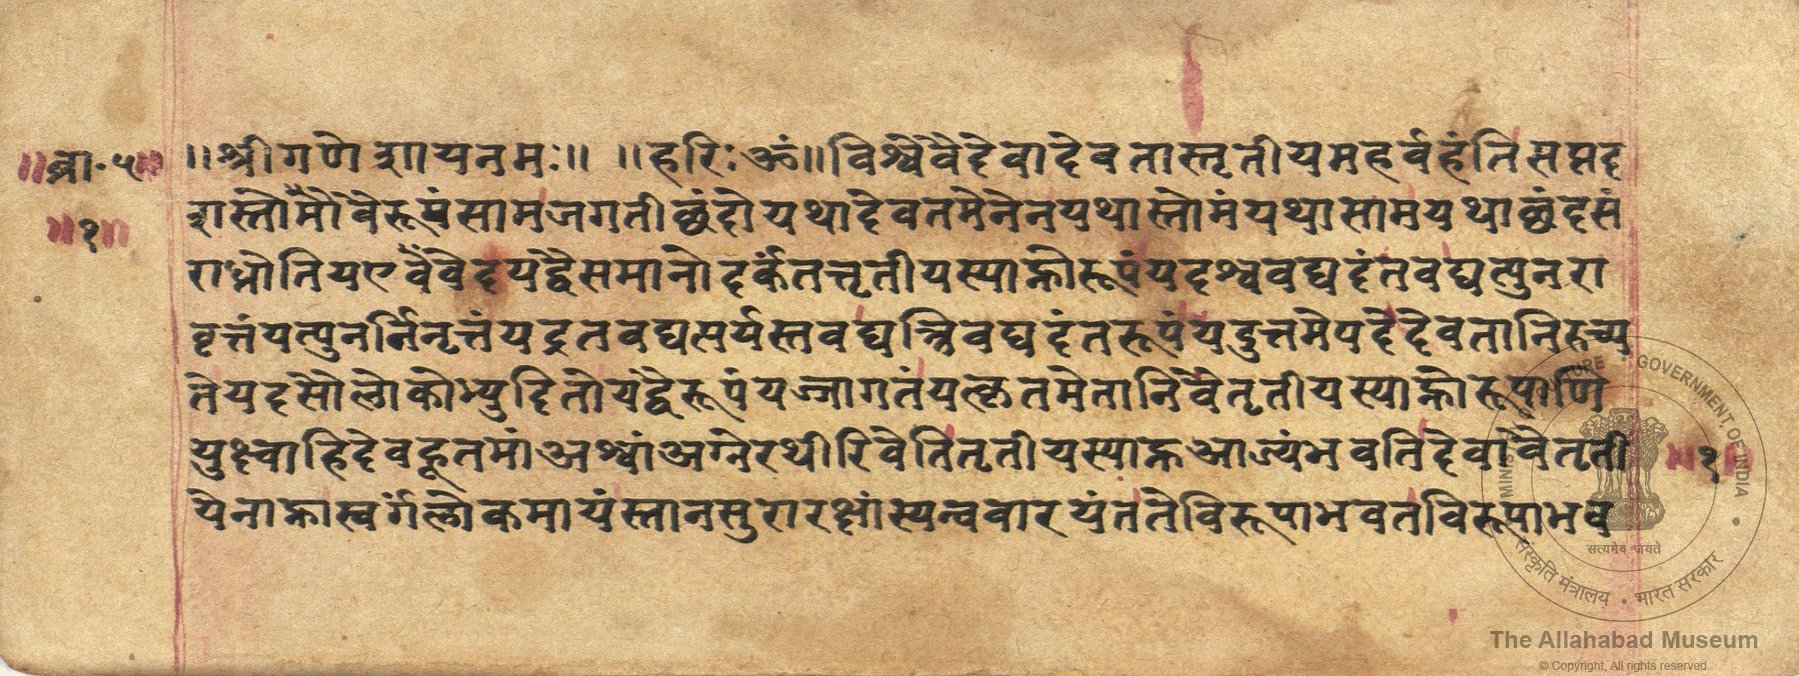 ॥ब्रा॰५॥
॥१॥
॥श्रीगणेशायनमः॥ ॥हरिःॐ॥विश्वेवैदेवादेवतास्तृतीयमहर्वहंतिसप्तद
शस्तोमोवैरूपंसामजगतीछंदोयथादेवतमेनेनयथास्तोमंयथासामयथाछंदसं
राध्नोतियएवंवेदयद्वैसमानोदर्कंतत्तृतीयस्याह्नोरूपंयदश्ववद्यदंतवद्यत्पुनरा
वृत्तंयत्पुनर्निनृत्तंयद्रतवद्यत्पर्यस्तवद्यत्त्रिवद्यदंतरूपंयदुत्तमेपदेदेवतानिरुच्य
तेयदसौलोकोभ्युदितोयद्वैरूपंयज्जागतंयत्कृतमेतानिवैतृतीयस्याह्नोरूपाणि
युक्ष्वाहिदेवहूतमांअश्वांअग्नेरथीरिवेतितृतीयस्याह्नआज्यंभवतिदेवावैतृती
येनाह्नास्वर्गंलोकमायंस्तानसुरारक्षांस्यन्ववारयंततेविरूपाभवतविरूपाभव
॥१॥
MINISTRY OF CULTURE • GOVERNMENT OF INDIA
सत्यमेव जयते
संस्कृति मंत्रालय • भारत सरकार
The Allahabad Museum
© Copyright, All rights reserved.